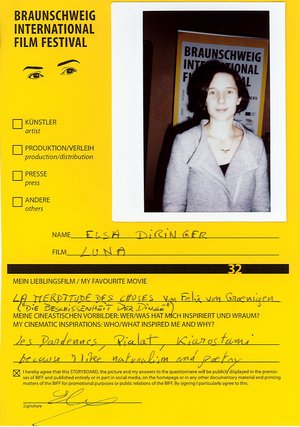 BRAUNSCHWEIG
INTERNATIONAL
FILM FESTIVAL
BRAUNSCHWEIG
INTERNATIONAL
FILM FESTIVAL
KÜNSTLER
artist
PRODUKTION/VERLEIH
production/distribution
PRESSE
press
ANDERE
others
NAME ELSA DIRINGER
FILM LUNA
32
MEIN LIEBLINGSFILM / MY FAVOURITE MOVIE
LA MERDITUDE DES CHOSES von Felix von Groenigen
("DIE BESCHISSENHEIT DER DINGE")
MEINE CINEASTISCHEN VORBILDER: WER/WAS HAT MICH INSPIRIERT UND WRAUM?
MY CINEMATIC INSPIRATIONS: WHO/WHAT INSPIRED ME AND WHY?
les Dardennes, Pialat, Kiarostami
because I like naturalism and poetry
I hereby agree that this STORYBOARD, the picture and my answers to the questionnaire will be publicly displayed in the premises of BIFF and published entirely or in part in social media, on the homepage or in any other documentary material and printing
matters of the BIFF for promotional purposes or public relations of the BIFF. By signing I particularly agree to this.
Signature